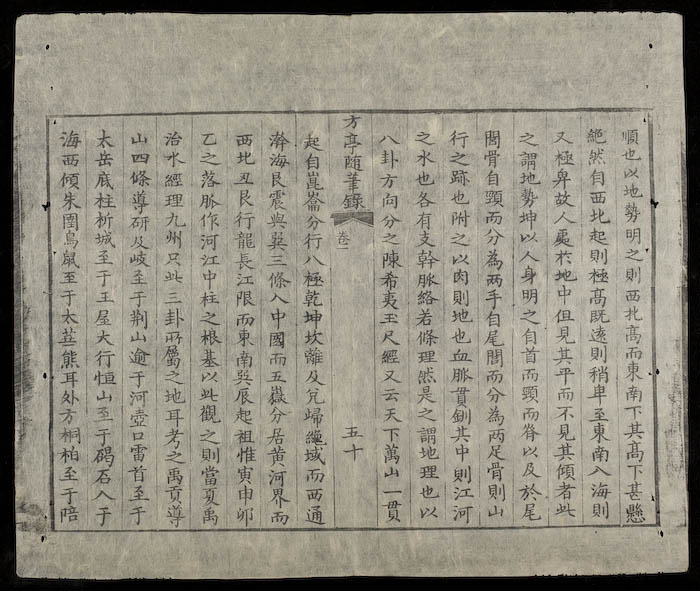 順也以地勢明之則西北高而東南下其高下甚懸
絕然自西北起則極高既遠則稍卑至東南入海則
又極卑故人處於地中但見其平而不見其傾者此
之謂地勢坤以人身明之自首而頸而脊以及於尾
閭骨自頸而分為兩手自尾閭而分為两足骨則山
行之跡也附之以肉則地也血脈貫釧其中則江河
之水也各有支幹脈絡若條理然是之謂地理也以
八卦方向分之陳希夷玉尺經又云天下萬山一貫
方亭随筆錄
卷一
五十
起自崑崙分行八極乾坤坎離及兌歸絕域而西通
瀚海艮震與巽三條入中國而五嶽分居黄河界而
西北丑艮行龍長江限而東南巽辰起祖惟寅申卯
乙之落脈作河江中柱之根基以此觀之則當夏禹
治水經理九州只此三卦所屬之地耳考之禹貢導
山四條導研及岐至于荆山逾于河壺口雷首至于
太岳底柱析城至于王屋大行恒山至于碣石入于
海西傾朱圉鳥鼠至于太華熊耳外方桐柏至于陪